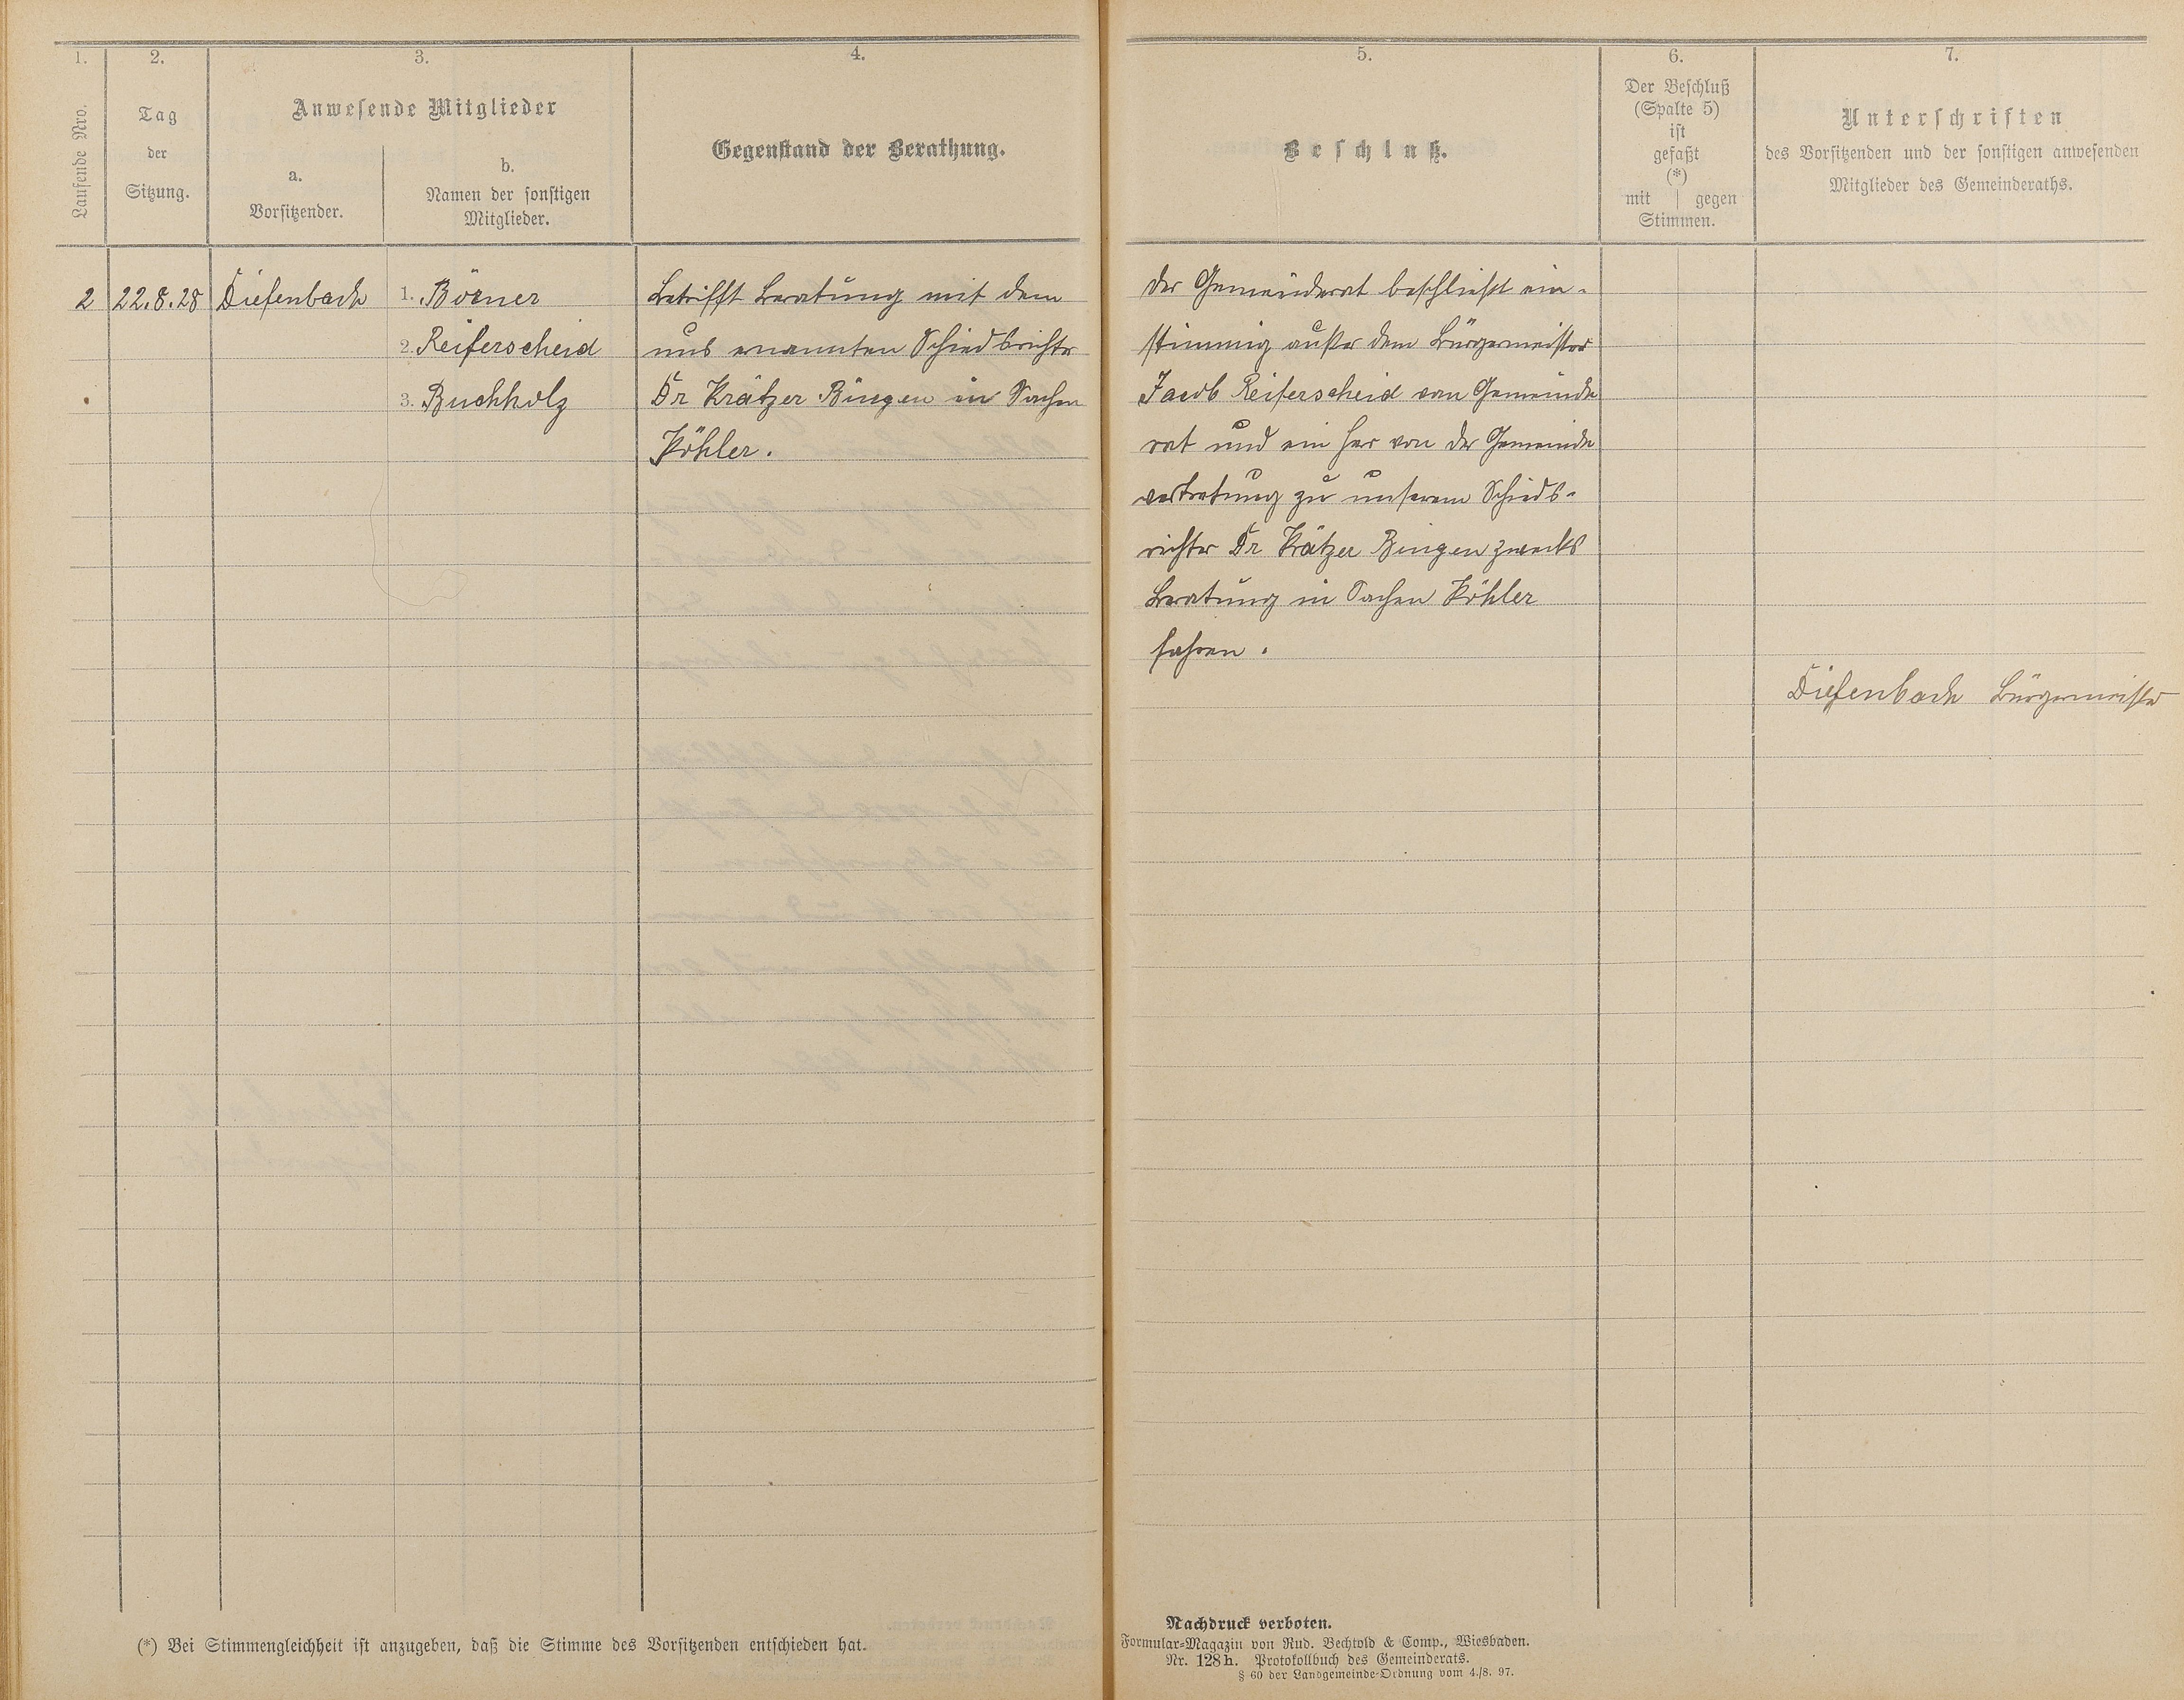 1.
2.
3.
4.
Laufende Nro.
Tag
der
Sitzung.
Anwesende Mitglieder
a.
Vorsitzender.
b.
Namen der sonstigen
Mitglieder.
Gegenstand der Berathung.
2
22.8.28
Diefenbach
1. Börner
2. Reiferscheid
3. Buchholz
Betrifft Beratung mit dem
uns ernannten Schiedsrichter
Dr Krätzer Bingen in Sachen
Köhler.
(*) Bei Stimmengleichheit ist anzugeben, daß die Stimme des Vorsitzenden entschieden hat.
5.
6.
7.
Beschluß.
Der Beschluß
(Spalte 5)
ist
gefaßt
(*)
mit | gegen
Stimmen.
Unterschriften
des Vorsitzenden und der sonstigen anwesenden
Mitglieder des Gemeinderaths.
Der Gemeinderat beschließt ein-
stimmig außer dem Bürgermeister
Jacob Reiferscheid vom Gemeinde
rat und ein Herr von der Gemeinde
vertretung zu unserem Schieds-
richter Dr Krätzer Bingen zwecks
Beratung in Sachen Köhler
fahren.
Diefenbach Bürgermeister
Nachdruck verboten.
Formular-Magazin von Rud. Bechtold & Comp., Wiesbaden.
Nr. 128h. Protokollbuch des Gemeinderats.
§ 60 der Landgemeinde-Ordnung vom 4./8. 97.